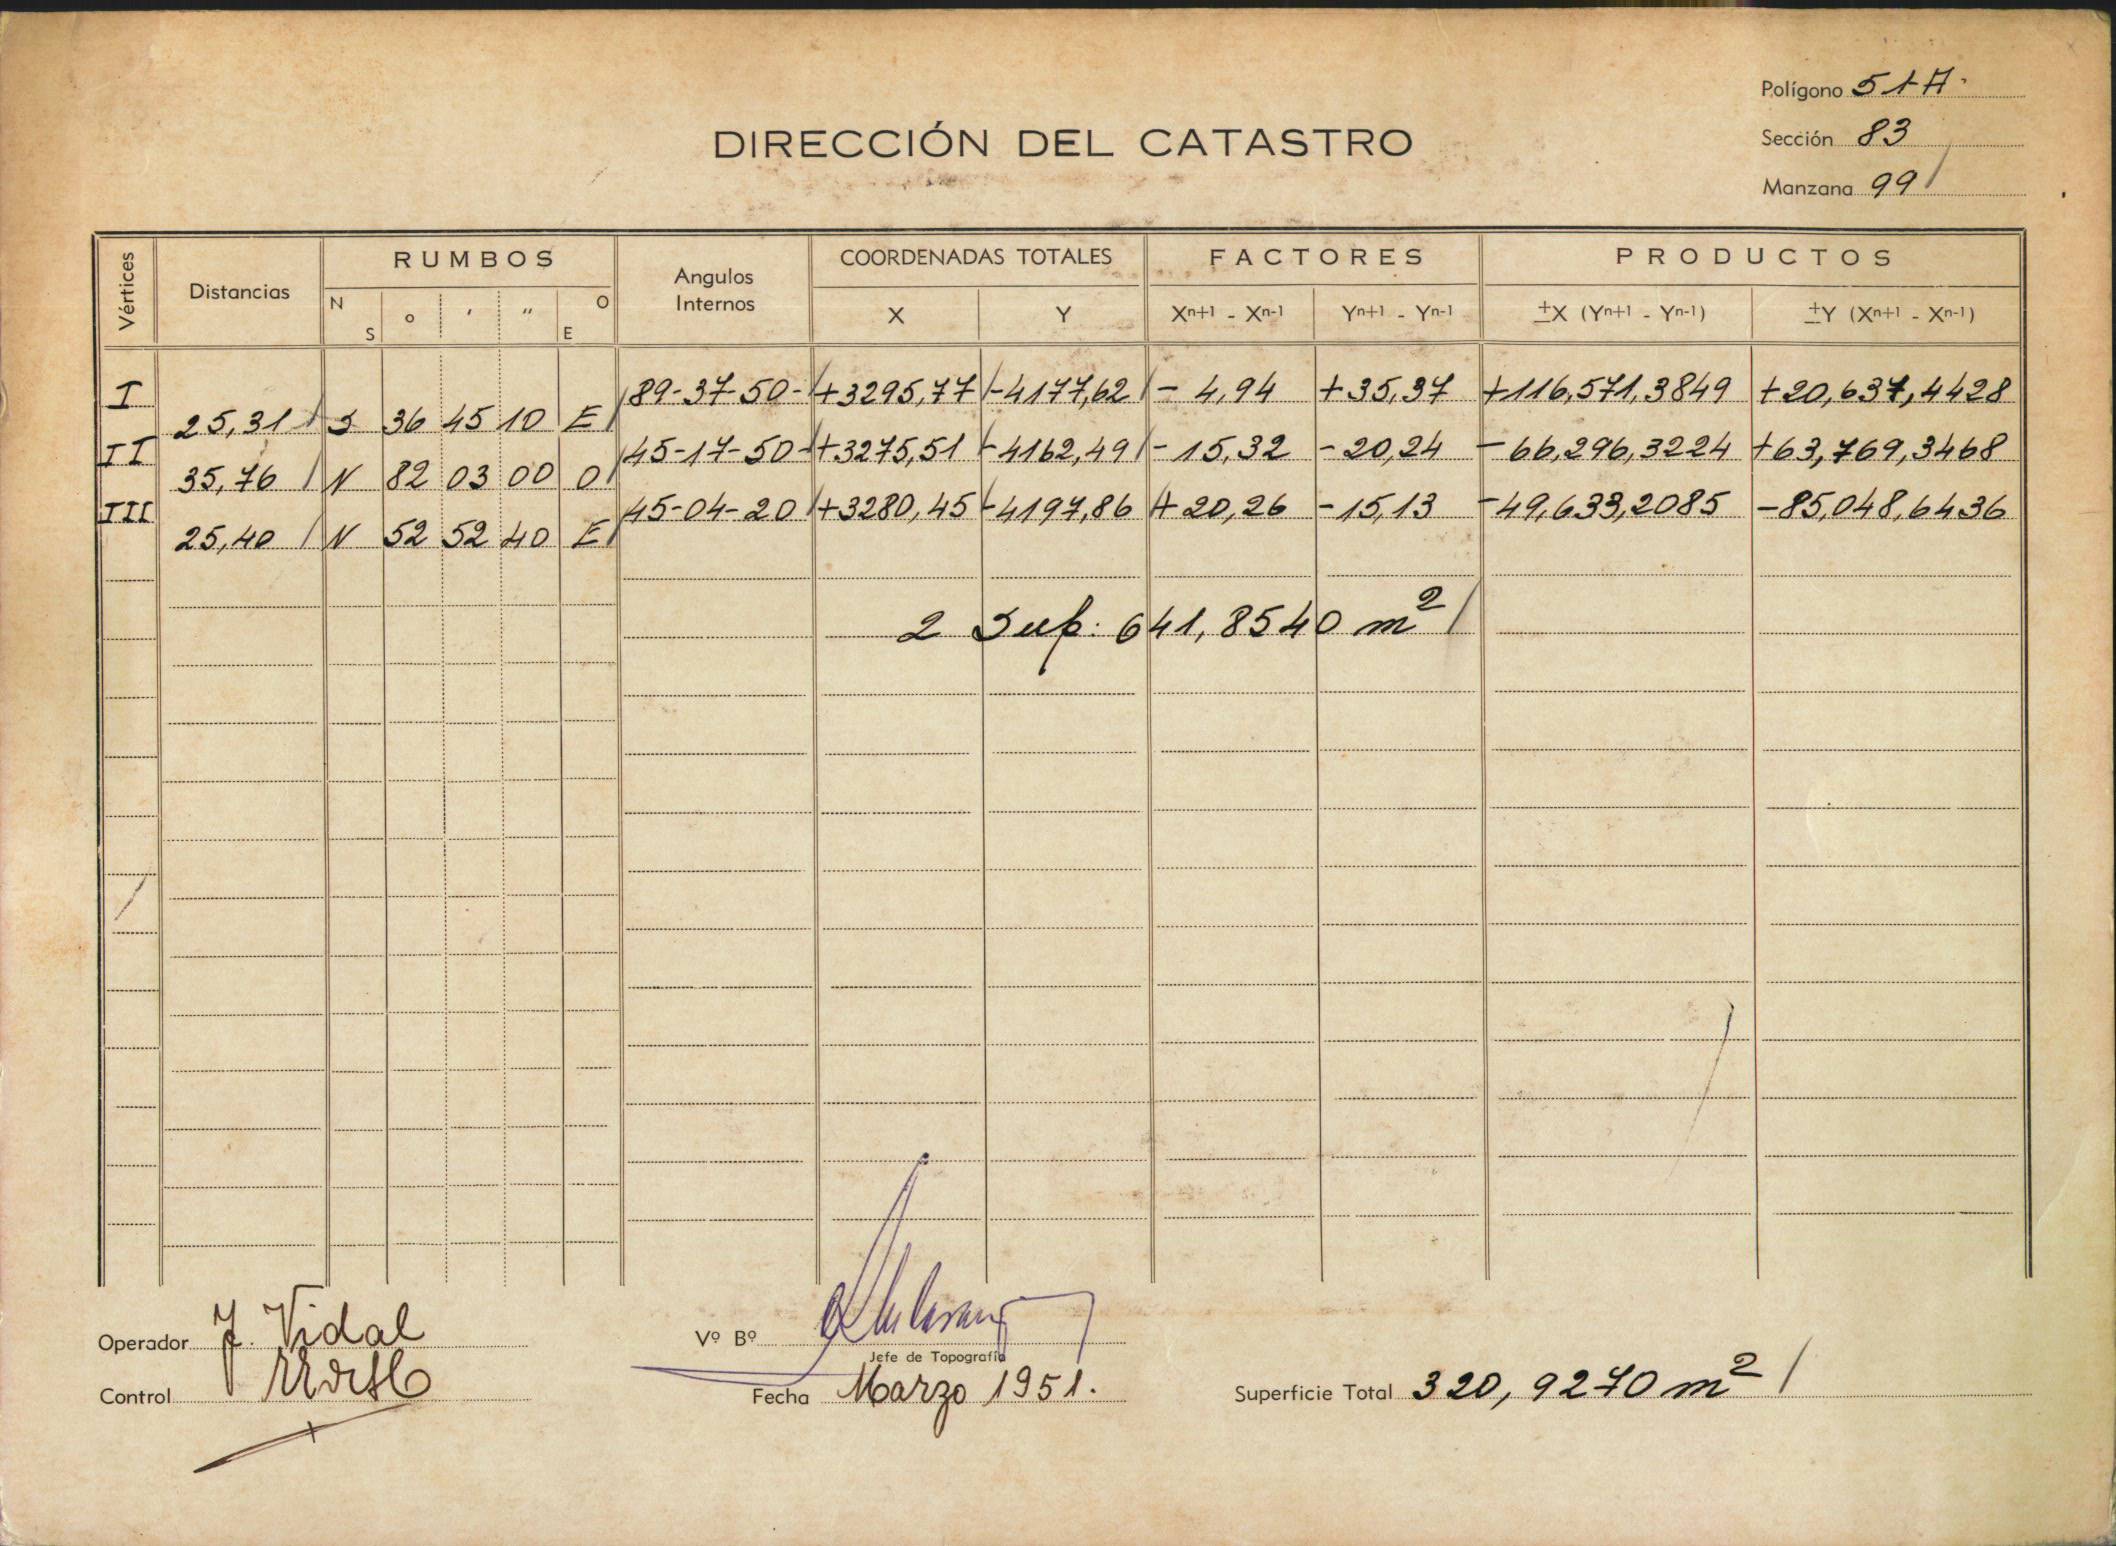 Polígono 51-A.
DIRECCIÓN DEL CATASTRO
Sección 83
Manzana 99
Vértices Distancias RUMBOS Angulos Internos COORDENADAS TOTALES FACTORES PRODUCTOS
N S o ' " O E X Y Xn+1 - Xn-1 Yn+1 - Yn-1 ±X (Yn+1 - Yn-1) ±Y (Xn+1 - Xn-1)
I 89-37-50- +3295,77 -4177,62 - 4,94 +35,37 +116,571,3849 +20,637,4428
25,31 S 36 45 10 E
II 45-17-50- +3275,51 -4162,49 -15,32 -20,24 -66,296,3224 +63,769,3468
35,76 N 82 03 00 O
III 45-04-20 +3280,45 -4197,86 +20,26 -15,13 -49,633,2085 -85,048,6436
25,40 N 52 52 40 E
2 Sup. 641,8540 m²
Operador J. Vidal Vº Bº
Jefe de Topografía
Control Fecha Marzo 1951. Superficie Total 320,9270 m²